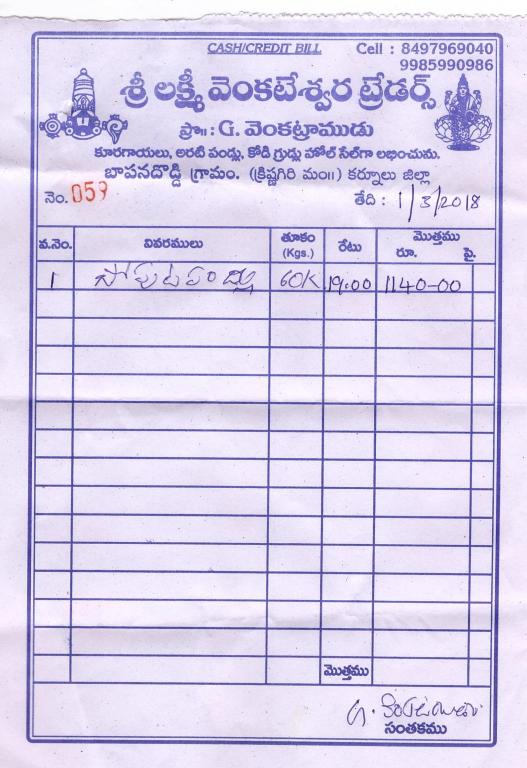 CASH/CREDIT BILL Cell : 8497969040
9985990986
శ్రీ లక్ష్మీ వెంకటేశ్వర ట్రేడర్స్
ప్రొ॥ : G. వెంకట్రాముడు
కూరగాయలు, అరటి పండ్లు, కోడి గ్రుడ్లు హోల్ సేల్‌గా లభించును.
బాపనదొడ్డి గ్రామం. (క్రిష్ణగిరి మం॥) కర్నూలు జిల్లా
నెం. 059 తేది : 1/3/2018
వ.నెం. వివరములు తూకం (Kgs.) రేటు మొత్తము రూ. పై.
1 సోపుటపండ్లు 60K 19.00 1140-00
మొత్తము
సంతకము